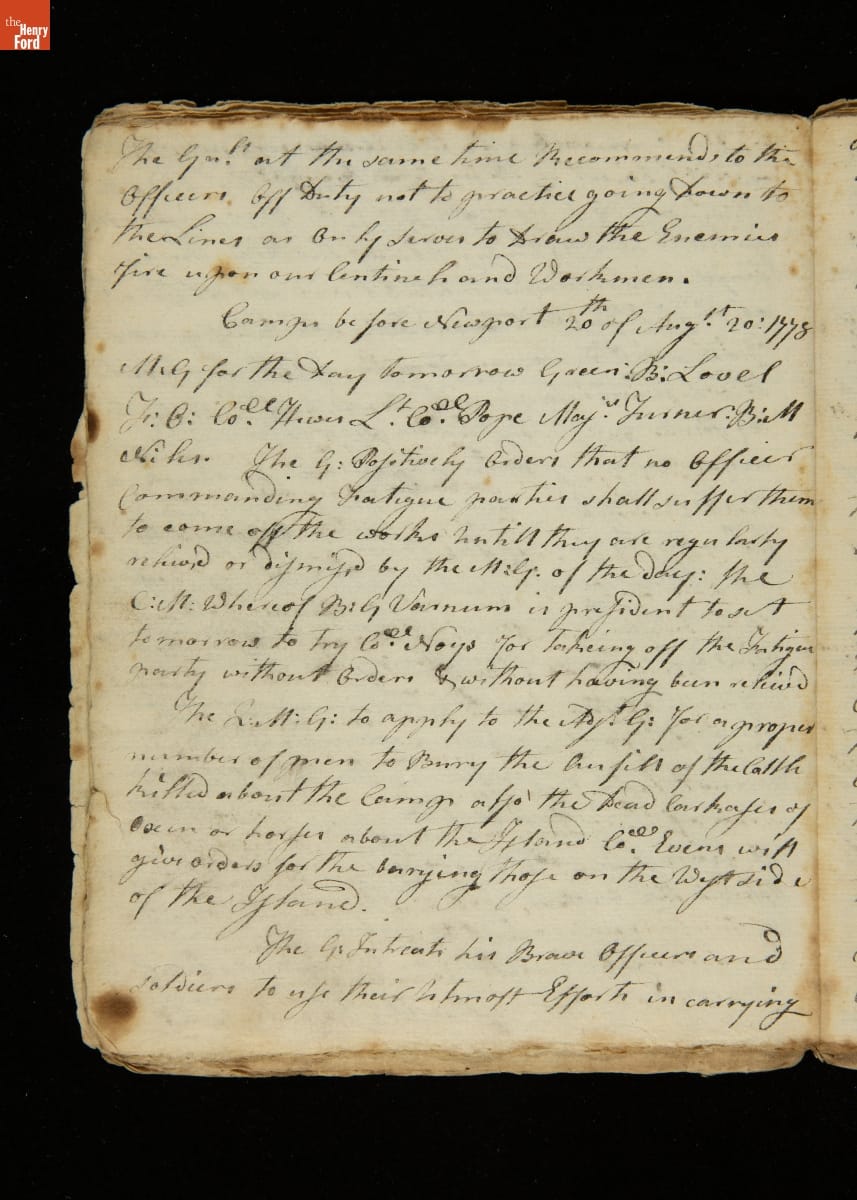 the
Henry
Ford
The Gnll. at the same time Recommends to the
Officers Off Duty not to practice going Down to
the Lines as Only serves to Draw the Enemies
fire upon our Centinels and Workmen.
Camp before Newport 20th of Augst. 20: 1778
M:G for the Day tomorrow Green: B: Lovel
F: O: Coll. Hews Lt. Coll. Pope Majr. Turner. B:M
The G: Positively Orders that no Officer
Commanding Fatigue parties shall suffer them
to come off the works Untill they are regularly
reliev'd or dismiss'd by the M:G. of the day: the
C:M: Whereof B:G Varnum is president to set
tomorrow to try Coll. Noys for takeing off the Fatigue
party without Orders & without having been reliev'd
The Q:M:G: to apply to the Adjt. G: for a proper
number of men to Burry the of the Cattle
killed about the Camp also the Dead Carkases of
Oxen or horses about the Island Coll. Evens will
give orders for the burying those on the West side
of the Island.
The G: Intreats his Brave Officers and
soldiers to use their Utmost Efforts in carrying